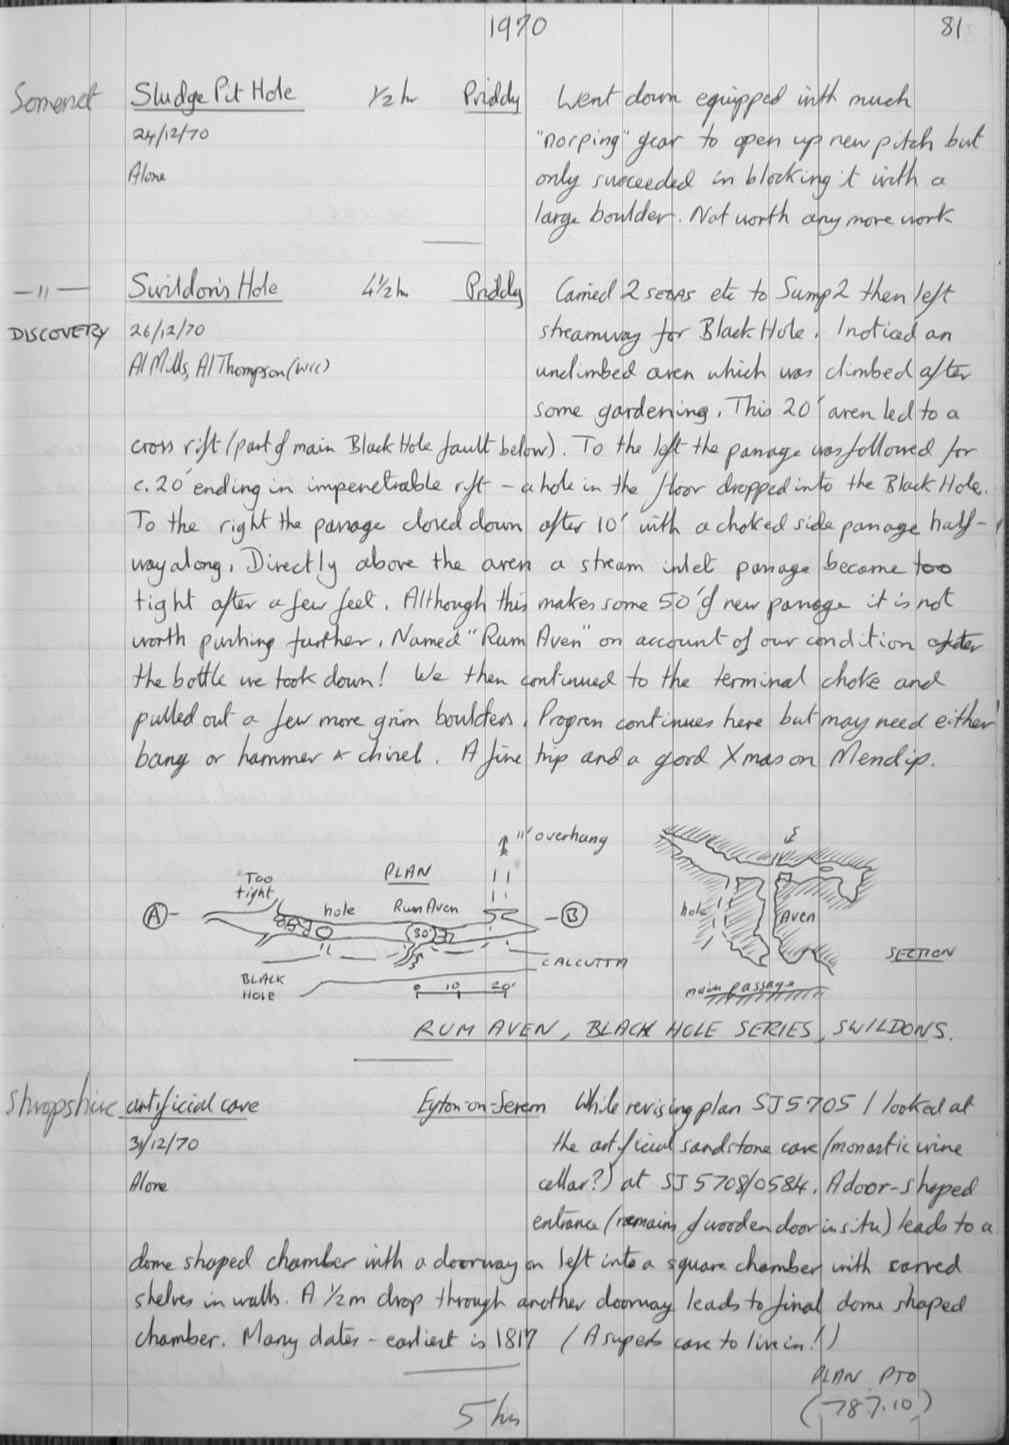 1970
81
Somerset Sludge Pit Hole ½ hr Priddy Went down equipped with much
24/12/70 "norping" gear to open up new pitch but
Alone only succeeded in blocking it with a
large boulder. Not worth any more work
—"— Swildon's Hole 4½ hr Priddy Carried 2 sedas etc to Sump 2 then left
DISCOVERY 26/12/70 streamway for Black Hole. I noticed an
Al Mills, Al Thompson (WCC) unclimbed aven which was climbed after
some gardening. This 20' aven led to a
cross rift (part of main Black Hole fault below). To the left the passage was followed for
c. 20' ending in impenetrable rift - a hole in the floor dropped into the Black Hole.
To the right the passage closed down after 10' with a choked side passage half-
way along. Directly above the aven a stream inlet passage became too
tight after a few feet. Although this makes some 50' of new passage it is not
worth pushing further. Named "Rum Aven" on account of our condition after
the bottle we took down! We then continued to the terminal choke and
pulled out a few more grim boulders. Progress continues here but may need either
bang or hammer & chisel. A fine trip and a good Xmas on Mendip.
11' overhang
PLAN
Too
tight
hole
Rum Aven
A
B
30'
CALCUTTA
BLACK
HOLE
0 10 20'
hole
Aven
SECTION
main passage
RUM AVEN, BLACK HOLE SERIES, SWILDONS.
Shropshire artificial cave Eyton-on-Severn While revising plan SJ5705 I looked at
31/12/70 the artificial sandstone cave (monastic wine
Alone cellar?) at SJ 5708/0584. A door-shaped
entrance (remains of wooden door in situ) leads to a
dome shaped chamber with a doorway on left into a square chamber with carved
shelves in walls. A ½m drop through another doorway leads to final dome shaped
chamber. Many dates - earliest is 1817 (A superb cave to live in!)
PLAN PTO
5 hrs
(787.10)